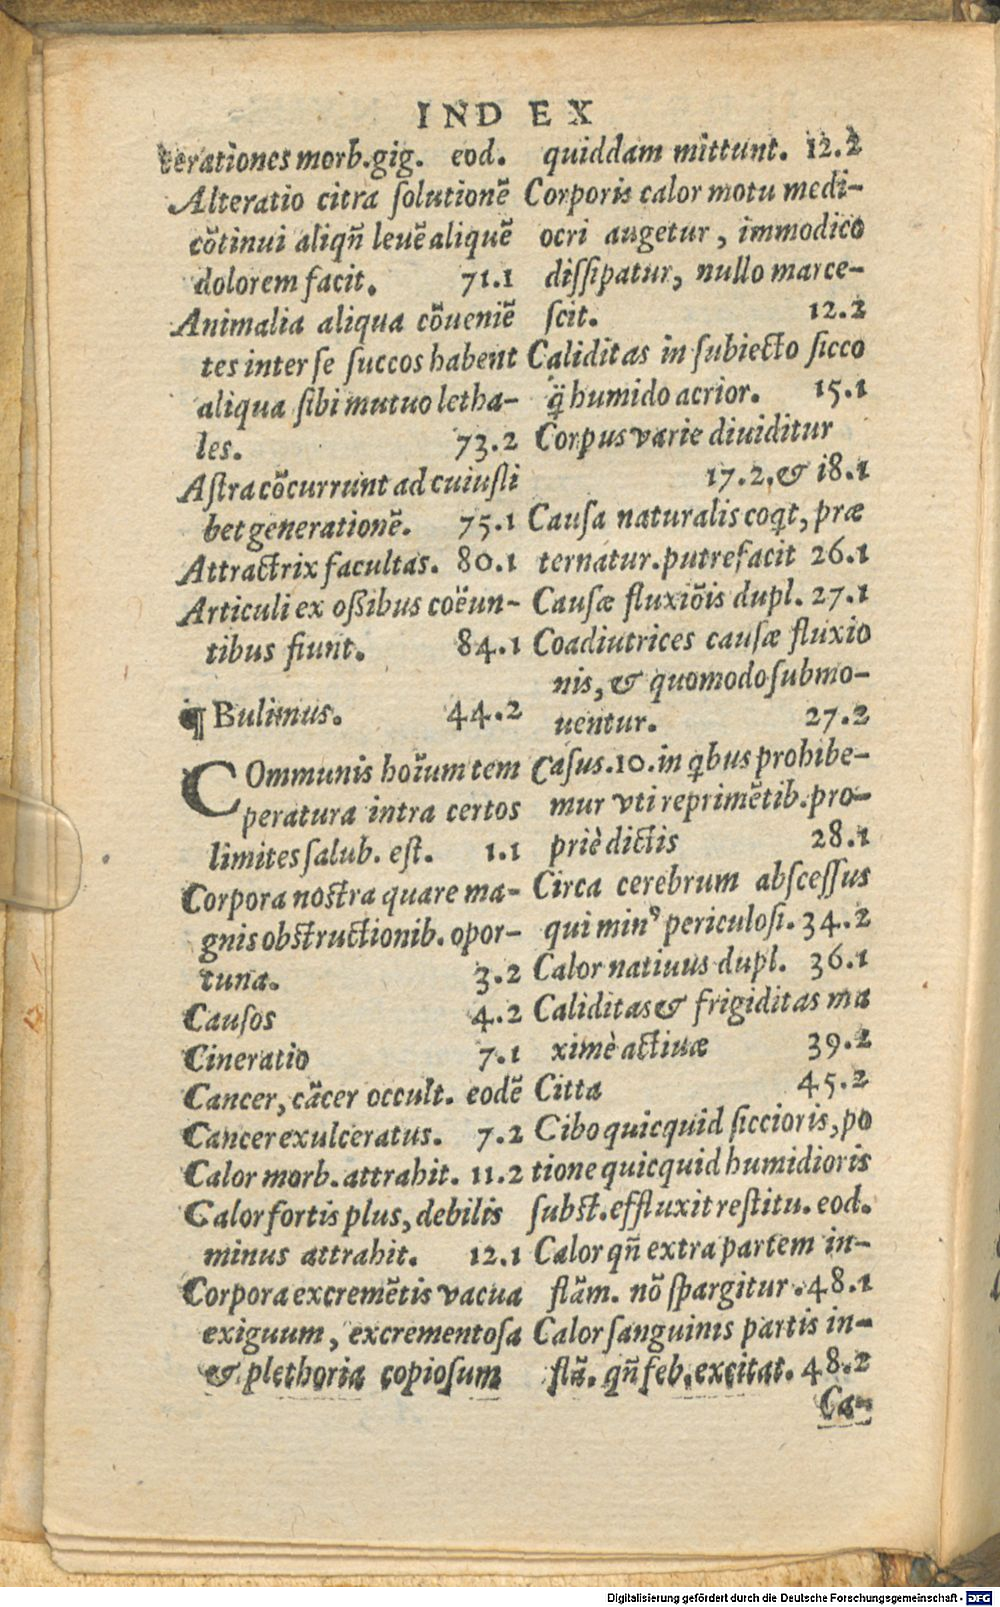 INDEX
terationes morb.gig. eod.
Alteratio citra ſolutionē
cōtinui aliqñ leuē aliquē
dolorem facit. 71.1
Animalia aliqua cōueniē
tes inter ſe ſuccos habent
aliqua ſibi mutuo letha-
les. 73.2
Aſtra cōcurrunt ad cuiuſli
bet generationē. 75.1
Attractrix facultas. 80.1
Articuli ex oßibus coëun-
tibus fiunt. 84.1
¶ Bulimus. 44.2
COmmunis horum tem
peratura intra certos
limites ſalub. eſt. 1.1
Corpora noſtra quare ma-
gnis obſtructionib. opor-
tuna. 3.2
Cauſos 4.2
Cineratio 7.1
Cancer, cācer occult. eodē
Cancer exulceratus. 7.2
Calor morb. attrahit. 11.2
Calor fortis plus, debilis
minus attrahit. 12.1
Corpora excremētis vacua
exiguum, excrementoſa
& plethoria copioſum
quiddam mittunt. 12.2
Corporis calor motu medi-
ocri augetur, immodico
diſſipatur, nullo marce-
ſcit. 12.2
Caliditas in ſubiecto ſicco
q̃ humido acrior. 15.1
Corpus varie diuiditur
17.2. & 18.1
Cauſa naturalis coqt, præ
ternatur. putrefacit 26.1
Cauſæ fluxiōis dupl. 27.1
Coadiutrices cauſæ fluxio
nis, & quomodo ſubmo-
uentur. 27.2
Caſus.10. in qbus prohibe-
mur vti reprimētib. pro-
priè dictis 28.1
Circa cerebrum abſceſſus
qui minꝰ periculoſi. 34.2
Calor natiuus dupl. 36.1
Caliditas & frigiditas ma
ximè actiuæ 39.2
Citta 45.2
Cibo quicquid ſiccioris, po
tione quicquid humidioris
ſubſt. effluxit reſtitu. eod.
Calor qñ extra partem in-
flām. nō ſpargitur. 48.1
Calor ſanguinis partis in-
flā. qñ feb. excitat. 48.2
Ca-
Digitalisierung gefördert durch die Deutsche Forschungsgemeinschaft - DFG